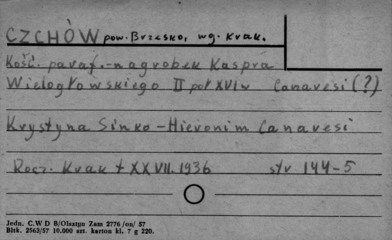 CZCHÓW pow. Brzesko, wg. Krak.
Kość. paraf. - nagrobek Kaspra
Wielogłowskiego II poł XVI w Canavesi (?)
Krystyna Sinko - Hieronim Canavesi
Rocz. Krak t XXVII. 1936 str 144-5
Jedn. C.W D B/Olsztyn Zam 2776/on/ 57
Blrk. 2563/57 10.000 szt. karton kl. 7 g 220.